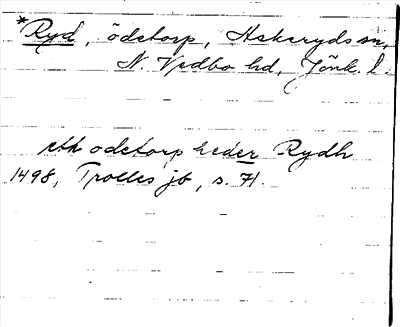 *Ryd, ödetorp, Askeryds sn,
N. Vedbo hd, Jönk. l.
eth ødetorp heder Rydh
1498, Trolles jb, s. 71.